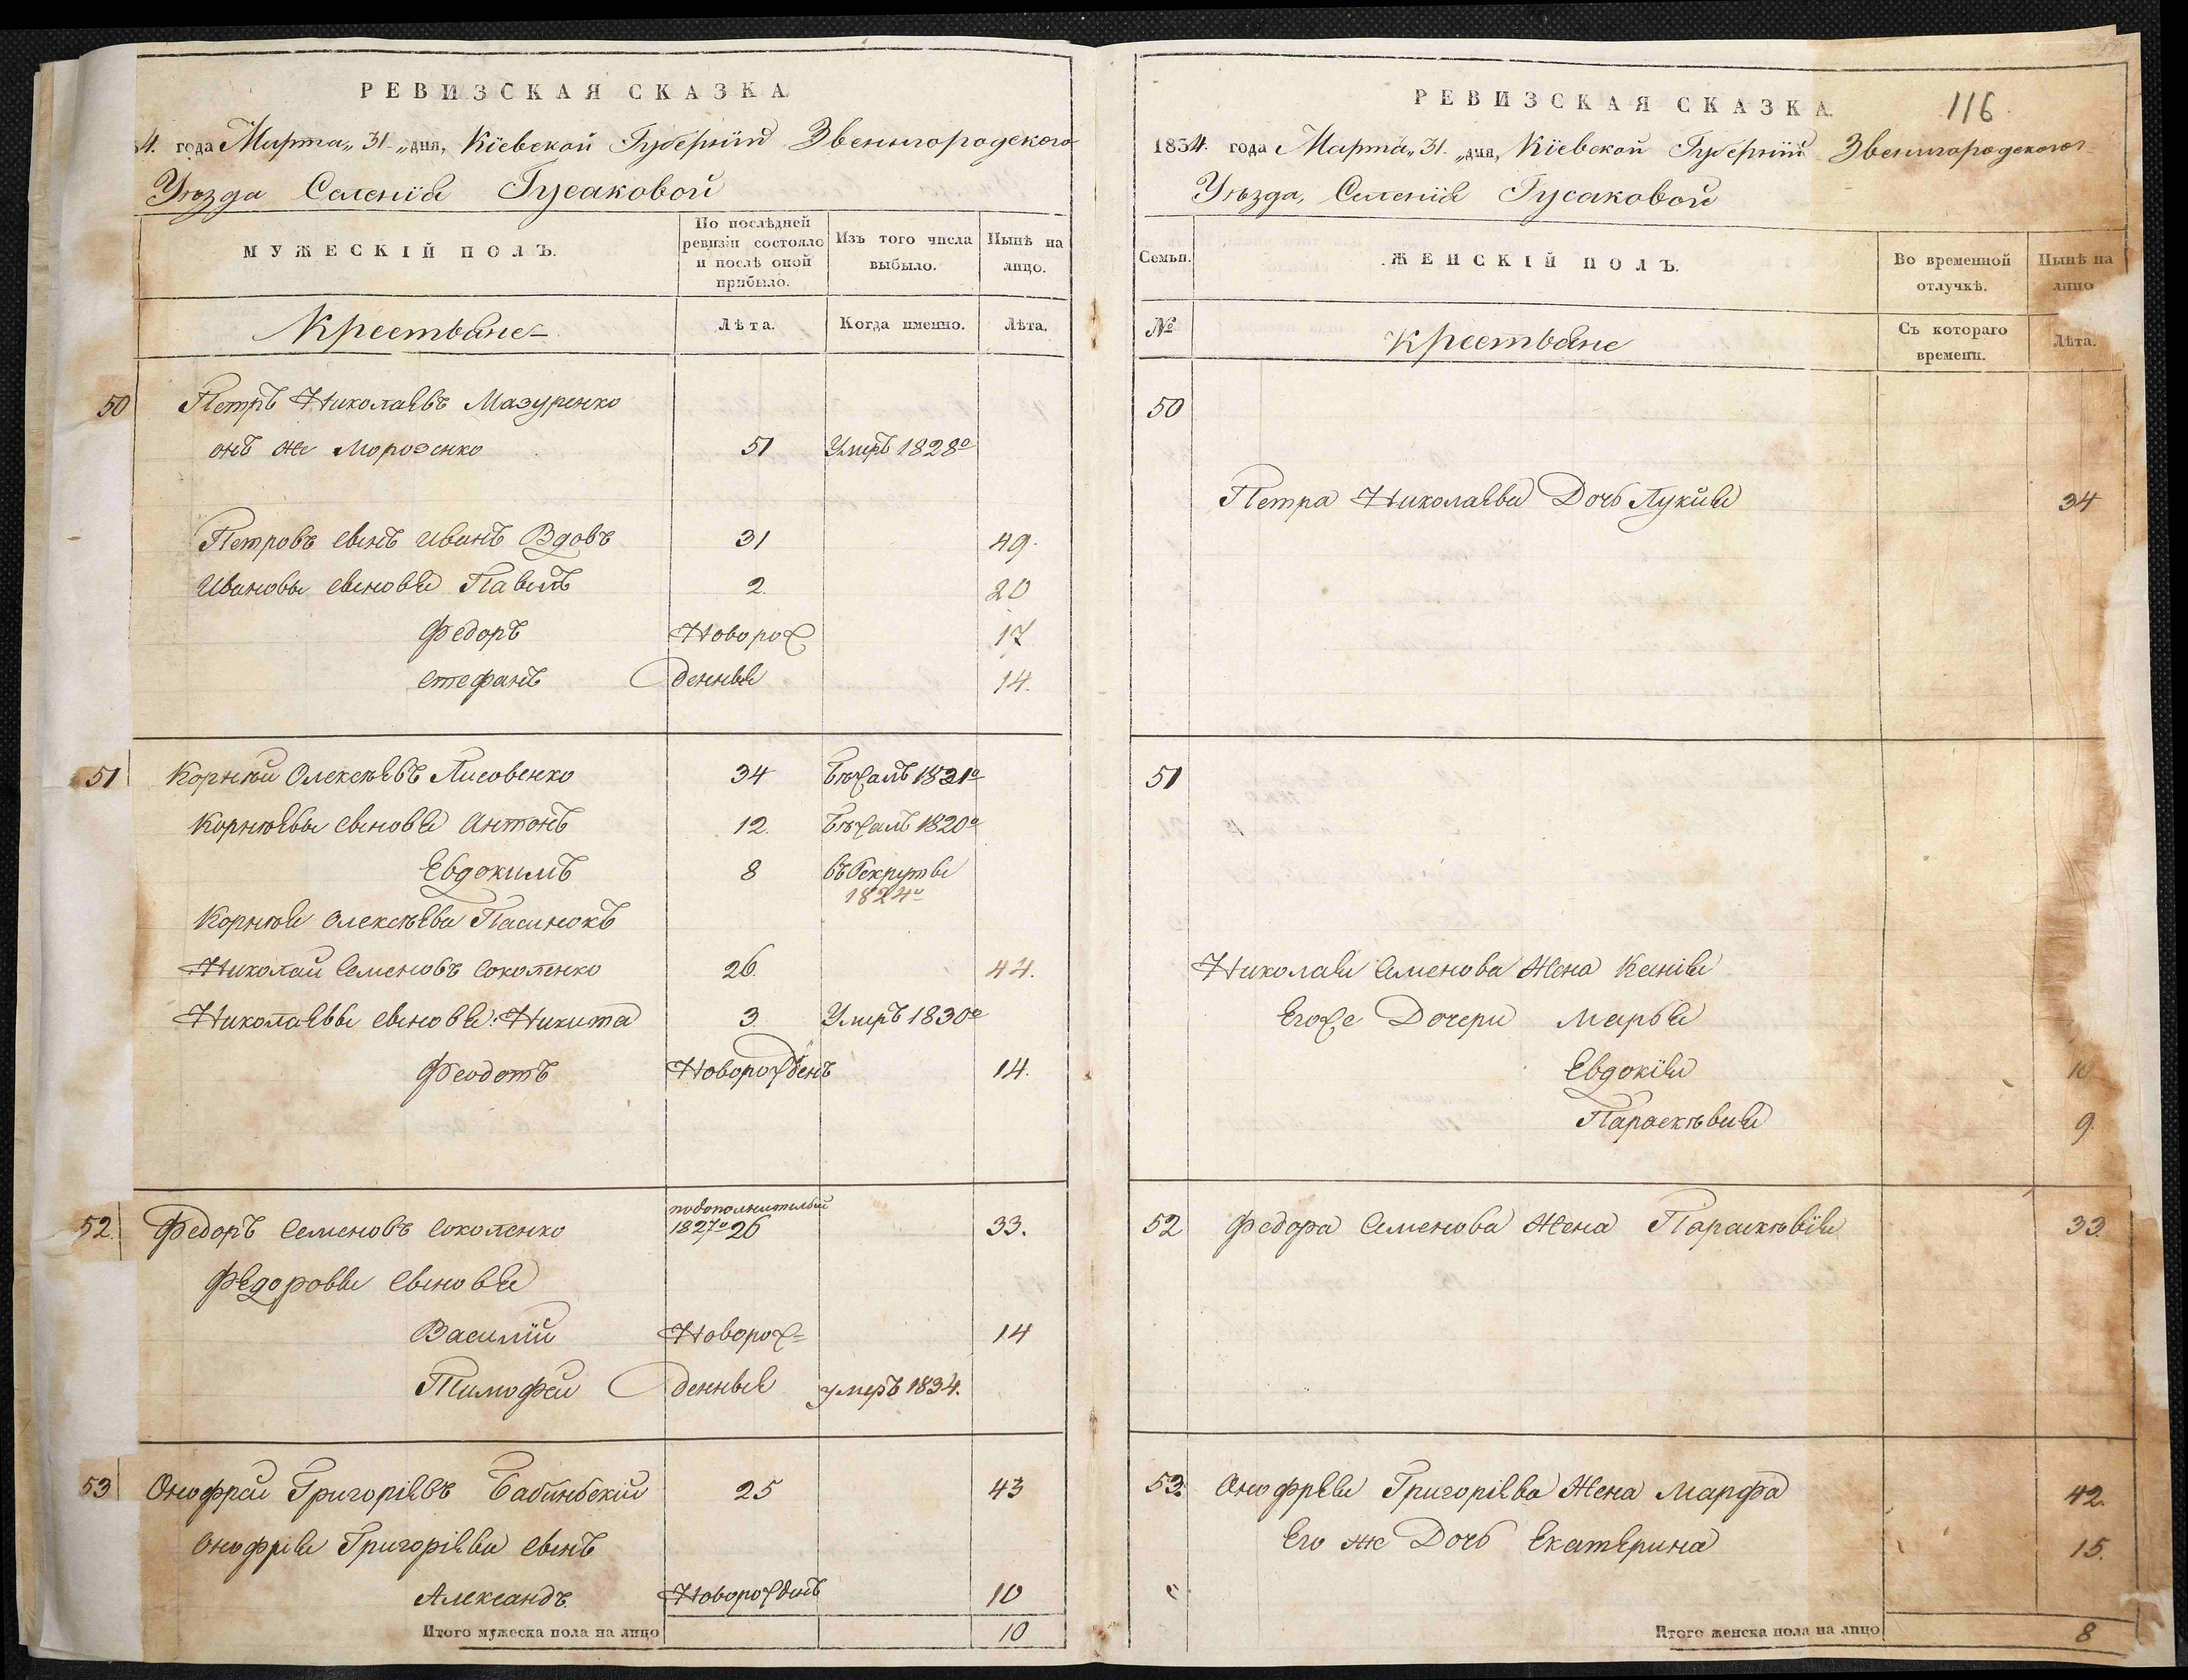 РЕВИЗСКАЯ СКАЗКА
4. года Марта „31„ дня, Кіевской Губерніи Звенигородского
Уѣзда Селенія Гусаковой
МУЖЕСКІЙ ПОЛЪ.
По послѣдней ревизіи состояло и послѣ оной прибыло.
Изъ того числа выбыло.
Нынѣ на лицо.
Крестьяне
Лѣта.
Когда именно.
Лѣта.
50 Петръ Николаевъ Мазуренко
онъ же Морозенко 51 Умеръ 1828го
Петровъ сынъ Иванъ Вдовъ 31 49.
Ивановы сыновья Павелъ 2. 20
Федоръ Новорож 17
Стефанъ денные 14.
51 Корнѣй Олексѣевъ Лисовенко 34 Бѣжалъ 1831го
Корнѣевы сыновья Антонъ 12. Бѣжалъ 1820го
Евдокимъ 8 въ Рекруты
1824го
Корнѣя Олексѣева Пасинокъ
Николай Семеновъ Соколенко 26. 44.
Николаевы сыновья: Никита 3. Умеръ 1830го
Феодотъ Новорожденъ 14.
52. Федоръ Семеновъ Соколенко подополнителной 1827го 26 33.
Федоровы сыновья
Василій Новорож= 14
Тимофей денные умеръ 1834.
53 Онофрей Григоріевъ Бабинскій 25 43
Онофрія Григоріева сынъ
Александъ Новорожденъ 10
Итого мужеска пола на лицо 10
РЕВИЗСКАЯ СКАЗКА.
116
1834. года Марта „31„ дня, Кіевской Губерніи Звенигородского
Уѣзда, Селенія Гусаковой
Семьи.
ЖЕНСКІЙ ПОЛЪ.
Во временной отлучкѣ.
Нынѣ на лицо
№
Крестьяне
Съ котораго времени.
Лѣта.
50
Петра Николаева Дочь Лукія 34
51
Николая Семенова Жена Ксенія
Егоже Дочери Марья
Евдокія 10
Параскѣвия 9.
52 Федора Семенова Жена Параскѣвія 33.
53. Онофрея Григоріева Жена Марфа 42.
Его же Дочь Екатерина 15.
Итого женска пола на лицо 8